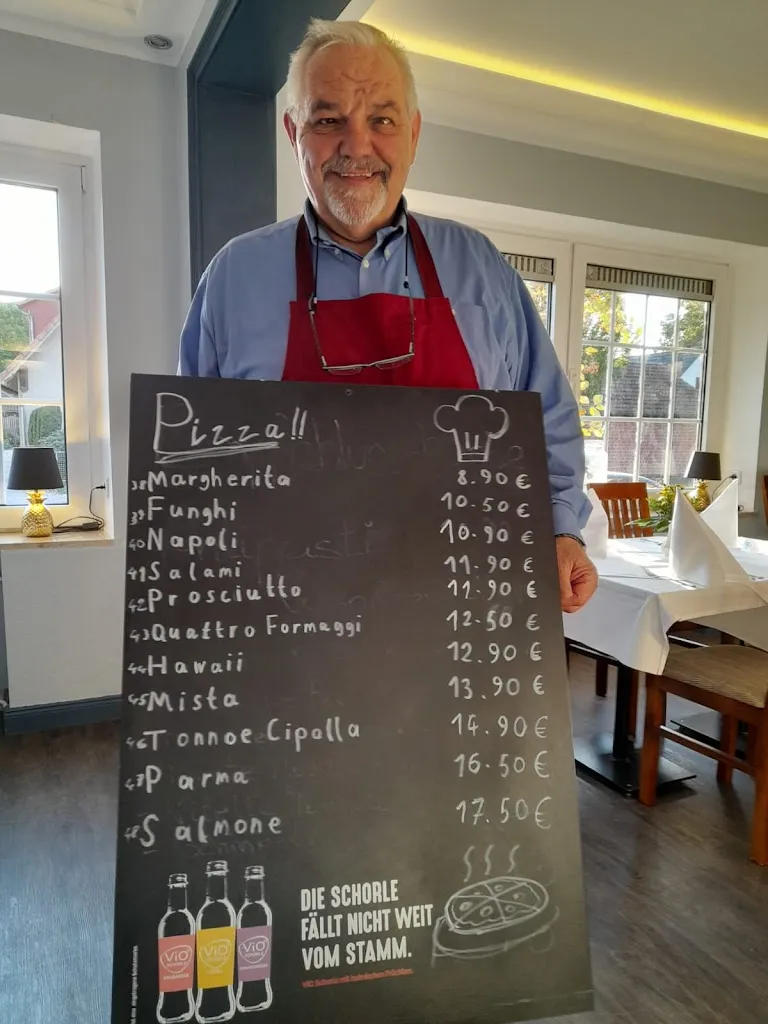 Pizza!!
38 Margherita 8.90 €
39 Funghi 10.50 €
40 Napoli 10.90 €
41 Salami 11.90 €
42 Prosciutto 11.90 €
43 Quattro Formaggi 12.50 €
44 Hawaii 12.90 €
45 Mista 13.90 €
46 Tonnoe Cipolla 14.90 €
47 Parma 16.50 €
48 Salmone 17.50 €
DIE SCHORLE
FÄLLT NICHT WEIT
VOM STAMM.
ViO ViO ViO